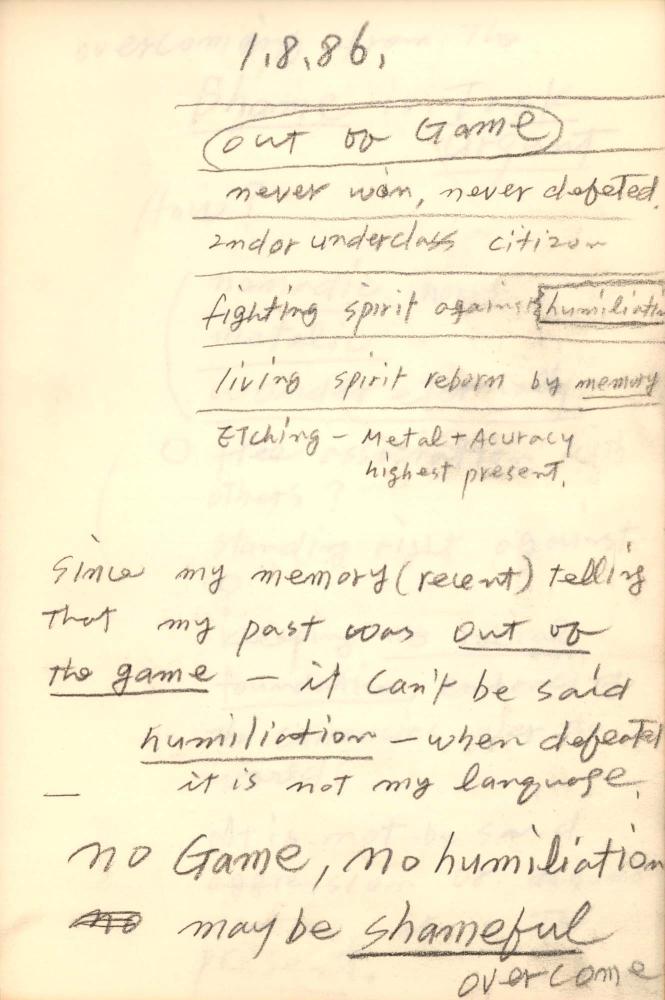 1.8.86.
out of Game
never won, never defeted.
2ndor underclass citizon
fighting spirit against humiliatin
living spirit reborn by memory
Etching - Metal + Acuracy
highest present.
since my memory (recent) telling
that my past was out of
the game - it can't be said
humiliation - when defeated
- it is not my language.
no Game, no humiliation
no may be shameful
overcome